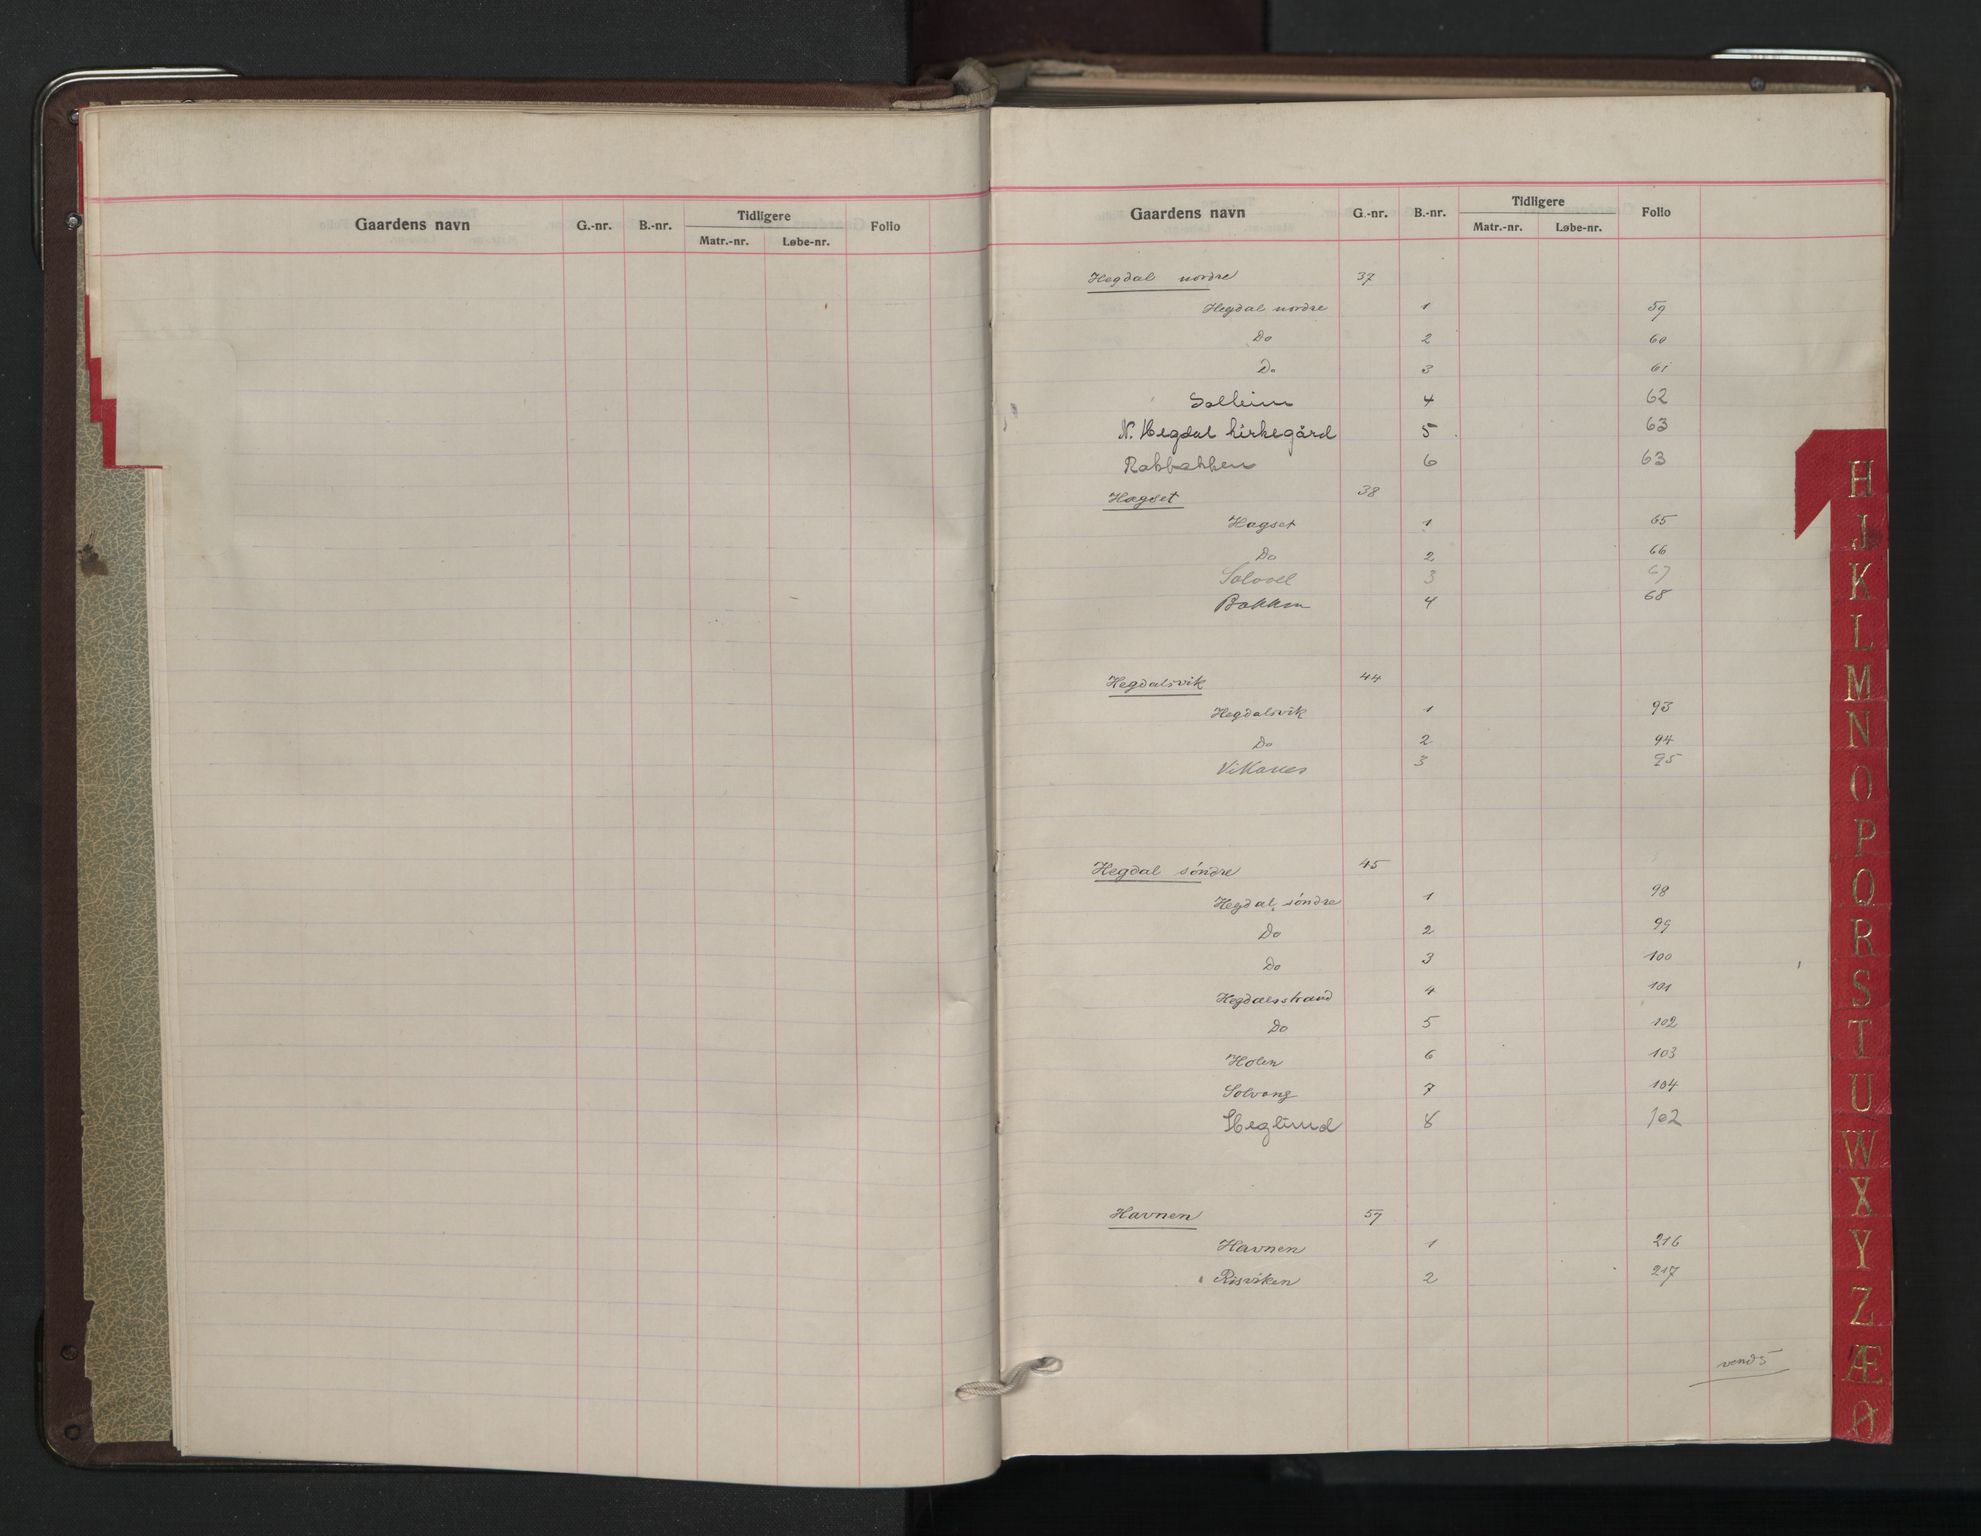 Gaardens navn G.-nr. B.-nr. Tidligere Matr.-nr. Løbe-nr. Folio
Gaardens navn G.-nr. B.-nr. Tidligere Matr.-nr. Løbe-nr. Folio
Hegdal nordre 37
Hegdal nordre 1 59
Do 2 60
Do 3 61
Solheim 4 62
N. Hegdal kirkegård 5 63
Rabbakken 6 63
Hagset 38
Hagset 1 65
Do 2 66
Solvoll 3 67
Bakken 4 68
Hegdalsvik 44
Hegdalsvik 1 93
Do 2 94
Vikanes 3 95
Hegdal söndre 45
Hegdal söndre 1 98
Do 2 99
Do 3 100
Hegdalsstrand 4 101
Do 5 102
Holen 6 103
Solvang 7 104
Heglund 8 102
Havnen 57
Havnen 1 216
Risviken 2 217
vend
H
J
K
L
M
N
O
P
Q
R
S
T
U
W
X
Y
Z
Æ
Ø